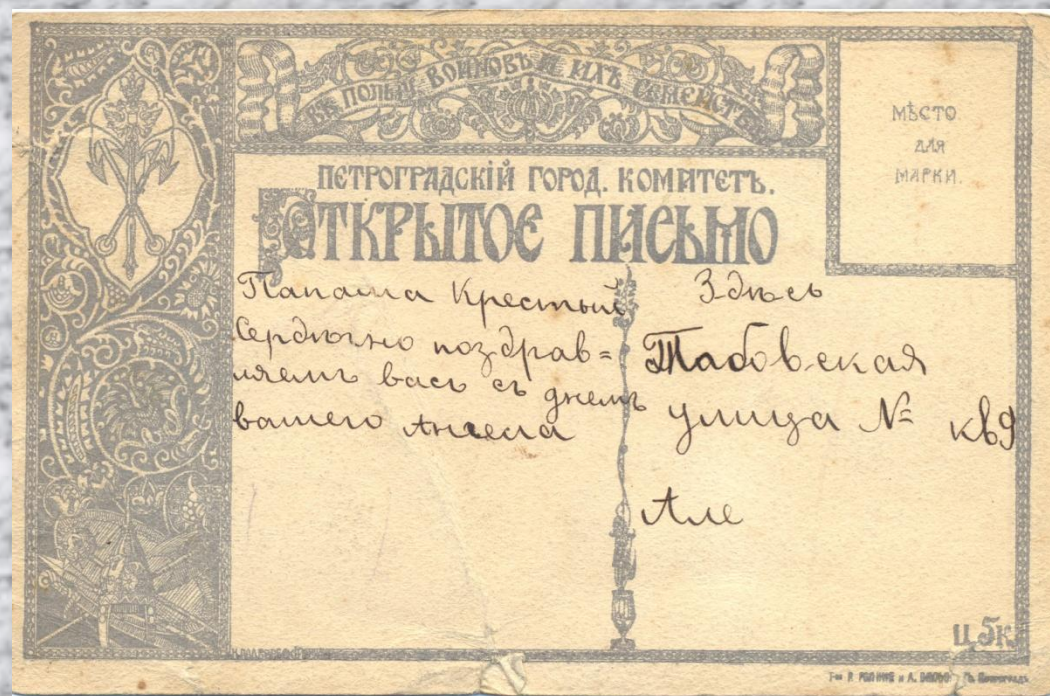 ВЪ ПОЛЬЗУ ВОИНОВЪ И ИХЪ СЕМЕЙСТВЪ
МѢСТО
ДЛЯ
МАРКИ.
ПЕТРОГРАДСКІЙ ГОРОД. КОМИТЕТЪ.
ОТКРЫТОЕ ПИСЬМО
Папаша Крестный
Сердечно поздрав=
ляемъ васъ съ днемъ
вашего Ангела
Здѣсь
Табовская
улица № кв 9
Але
Ц. 5 к.